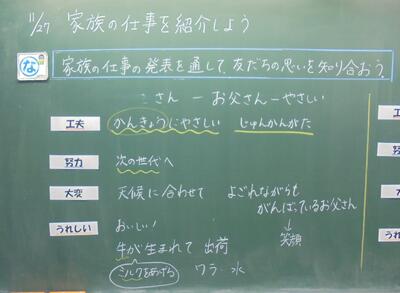 11/27 家族の仕事を紹介しよう
な 家族の仕事の発表を通して、友だちの思いを知り合おう。
さん ー お父さんーやさしい
工夫 かんきょうにやさしい じゅんかんがた
努力 次の世代へ
大変 天候に合わせて よごれながらも
がんばっているお父さん
↓
笑顔
うれしい おいしい!
牛が生まれて 出荷
ミルクをあげる ワラ・水